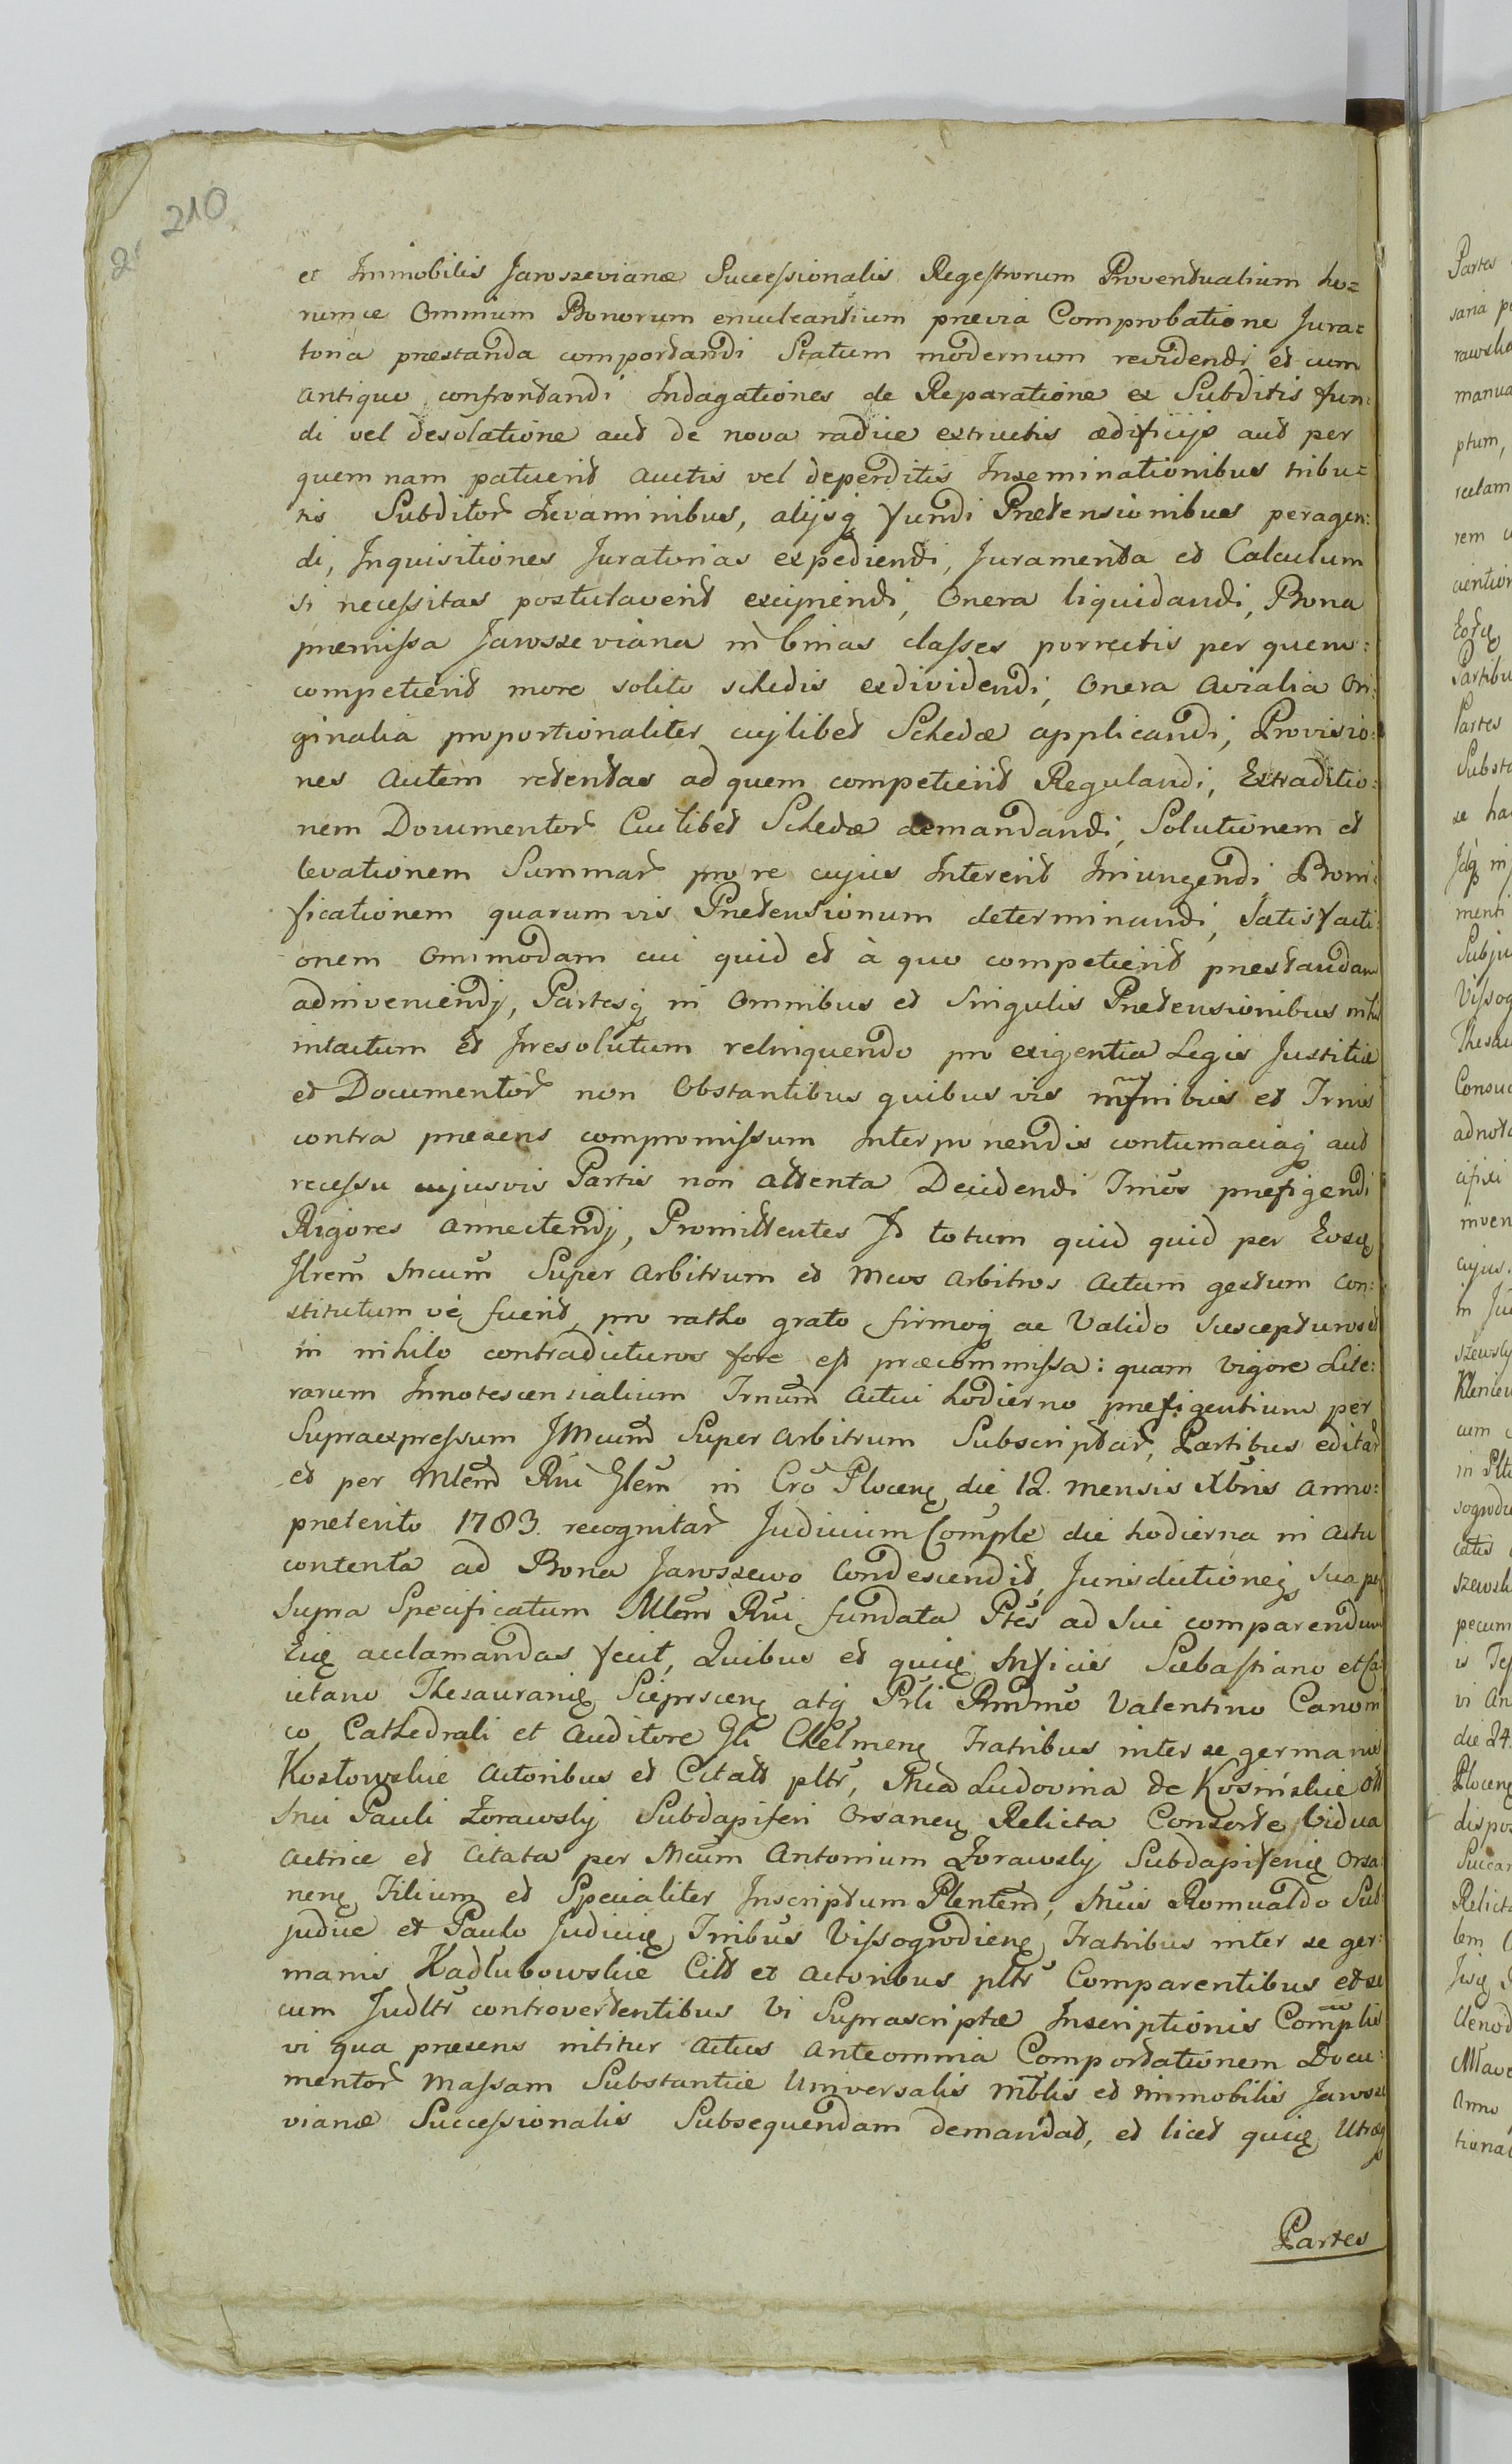 210
et Immobilis Jaroszevianæ Successionalis Regestrorum Proventualium ho=
rumce Omnium Bonorum enucleantium prævia Comprobatione Jura=
toria præstanda comportandi Statum modernum revidendi et cum
antiquo confrontandi Indagationes de Reparatione ex Subditis fun:
di vel desolatione aut de nova radice extructis ædificijs aut per
quem nam patuerit auctis vel deperditis Inseminationibus tribu=
tis Subditor Levaminibus, alijsq fundi Prætensionibus peragen:
di, Inquisitiones Juratorias expediendi, Juramenta et Calculum
si necessitas postulaverit excipiendi, Onera liquidandi, Bona
præmissa Jaroszeviana in binas classes porrectis per quem:
competierit more solito schedis exdividendi, Onera avialia Ori:
ginalia proportionaliter cujlibet Schedæ applicandi, Provisio:
nes autem retentas ad quem competierit Regulandi, Extraditio:
nem Documentor Cuilibet Schedæ demandandi, Solutionem et
levationem Summar pro re cujus Intererit Iniungendi, Boni:
ficationem quarumvis Prætensionum determinandi, Satisfacti:
onem omnimodam cui quid et à quo competierit præstandam
adinveniendj, Partesq in Omnibus et Singulis Prætensionibus nihil
intactum et Irresolutum relinquendo pro exigentia Legis Justitiæ
et Documentor non Obstantibus quibus vis et Trnis
contra præsens compromissum Interponendis contumaciaq aut
recessu cujusvis Partis non attenta Decidendi Tmos præfigendi
Rigores annectendj, Promittentes Id totum quid quid per Eosd
Super Arbitrum et Mcos Arbitros actum gestum con:
stitutum ve fuerit, pro ratho grato firmoq ac Valido suscepturos et
in nihilo contradicturos fore est præcommissa: quam vigore Lite:
rarum Innotescensialium Trnum actui hodierno præfigentium per
Supraexpressum JMcum Super Arbitrum Subscriptar, Partibus editar
et per Mlem Rni Glem in Cro Plocen die 12. mensis Xbris anno:
præterito 1783. recognitar Judicium Comple die hodierna in actu
contenta ad Bona Jaroszewo Condescendit, Jurisdictioneq sua per
Supra Specificatum Mlem Rni fundata Ptes ad Sui comparendum
acclamandas fecit, Quibus et Sebastiano et Ca
ietano Thesaurarie Sieprscen atq Prli Rmdmo Valentino Canoni
co Cathedrali et Auditore Gli Chelmen Fratribus inter se germanis
Kozłowskie Actoribus et Citatt pltr, Mca Ludovina de Kosińskie Olt
Mci Pauli Zorawskj Subdapiferi Orsanen Relicta Consorte Vidua
actrice et Citata per Mcum Antonium Zorawskj Subdapiferie Orsa
nen Filium et Specialiter Inscriptum Plentem, Mcis Romualdo Sub
judice et Paulo Judicie Tribus Vissogrodien Fratribus inter se ger:
manis Kadłubowskie Citt et actoribus pltr Comparentibus et se
cum Judltr controvertentibus Vi Suprascriptæ Inscriptionis Complis
vi qua præsens nititur actus anteomnia Comportationem Docu:
mentor Massam Substantiæ Universalis mblis et immobilis Jarosze
vianæ Successionalis Subsequendam demandat, et licet Utræq
Partes